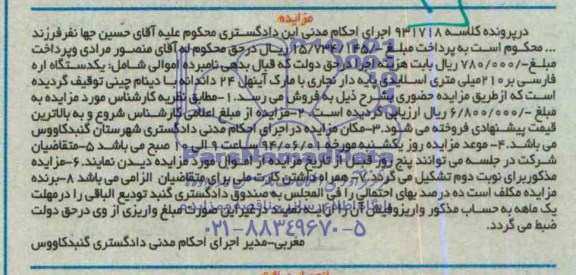 مزایده
درپرونده کلاسه ۹۳۱۷۱۸ اجرای احکام مدنی این دادگستری محکوم علیه آقای حسین جها نفرفرزند
... محکوم است به پرداخت مبلغ ۲۵/۷۳۴/۱۴۵/- ریال درحق محکوم له آقای منصور مرادی وپرداخت
مبلغ ۷۸۰/۰۰۰/- ریال بابت هزینه اجرا درحق دولت که قبال بدهی نامبرده اموالی شامل: یکدستگاه اره
فارسی بر ۲۱۰میلی متری اسلایدی پایه دار نجاری با مارک آینهل ۲۴ داندانه با دینام چینی توقیف گردیده
است که ازطریق مزایده حضوری بشرح ذیل به فروش می رسد. ۱-مطابق نظریه کارشناس مورد مزایده به
مبلغ ۶/۸۰۰/۰۰۰/- ریال ارزیابی گردیده است ۲-مزایده از مبلغ اعلامی کارشناس شروع و به بالاترین
قیمت پیشنهادی فروخته می شود.۳-مکان مزایده دراجرای احکام مدنی دادگستری شهرستان گنبدکاووس
می باشد.۴- موعد مزایده روز یکشنبه مورخه ۹۴/۰۶/۰۱ ساعت ۹ الی ۱۰ صبح می باشد ۵-متقاضیان
شرکت در جلسه می توانند پنج روز قبل از تاریخ مزایده از اموال مورد مزایده دیدن نمایند.۶-مزایده
مذکوربرای نوبت دوم تشکیل می گردد.۷- همراه داشتن کارت ملی برای متقاضیان الزامی می باشد ۸-برنده
مزایده مکلف است ده درصد بهای احتمالی را فی المجلس به صندوق دادگستری گنبد تودیع الباقی را درمهلت
یک ماهه به حساب مذکور واریزوفیش آن را ارایه نمایند درغیراین صورت مبلغ واریزی از وی درحق دولت
ضبط می گردد.
۰۲۱-۸۸۳۴۹۶۷۰-۵
مغربی-مدیر اجرای احکام مدنی دادگستری گنبدکاووس